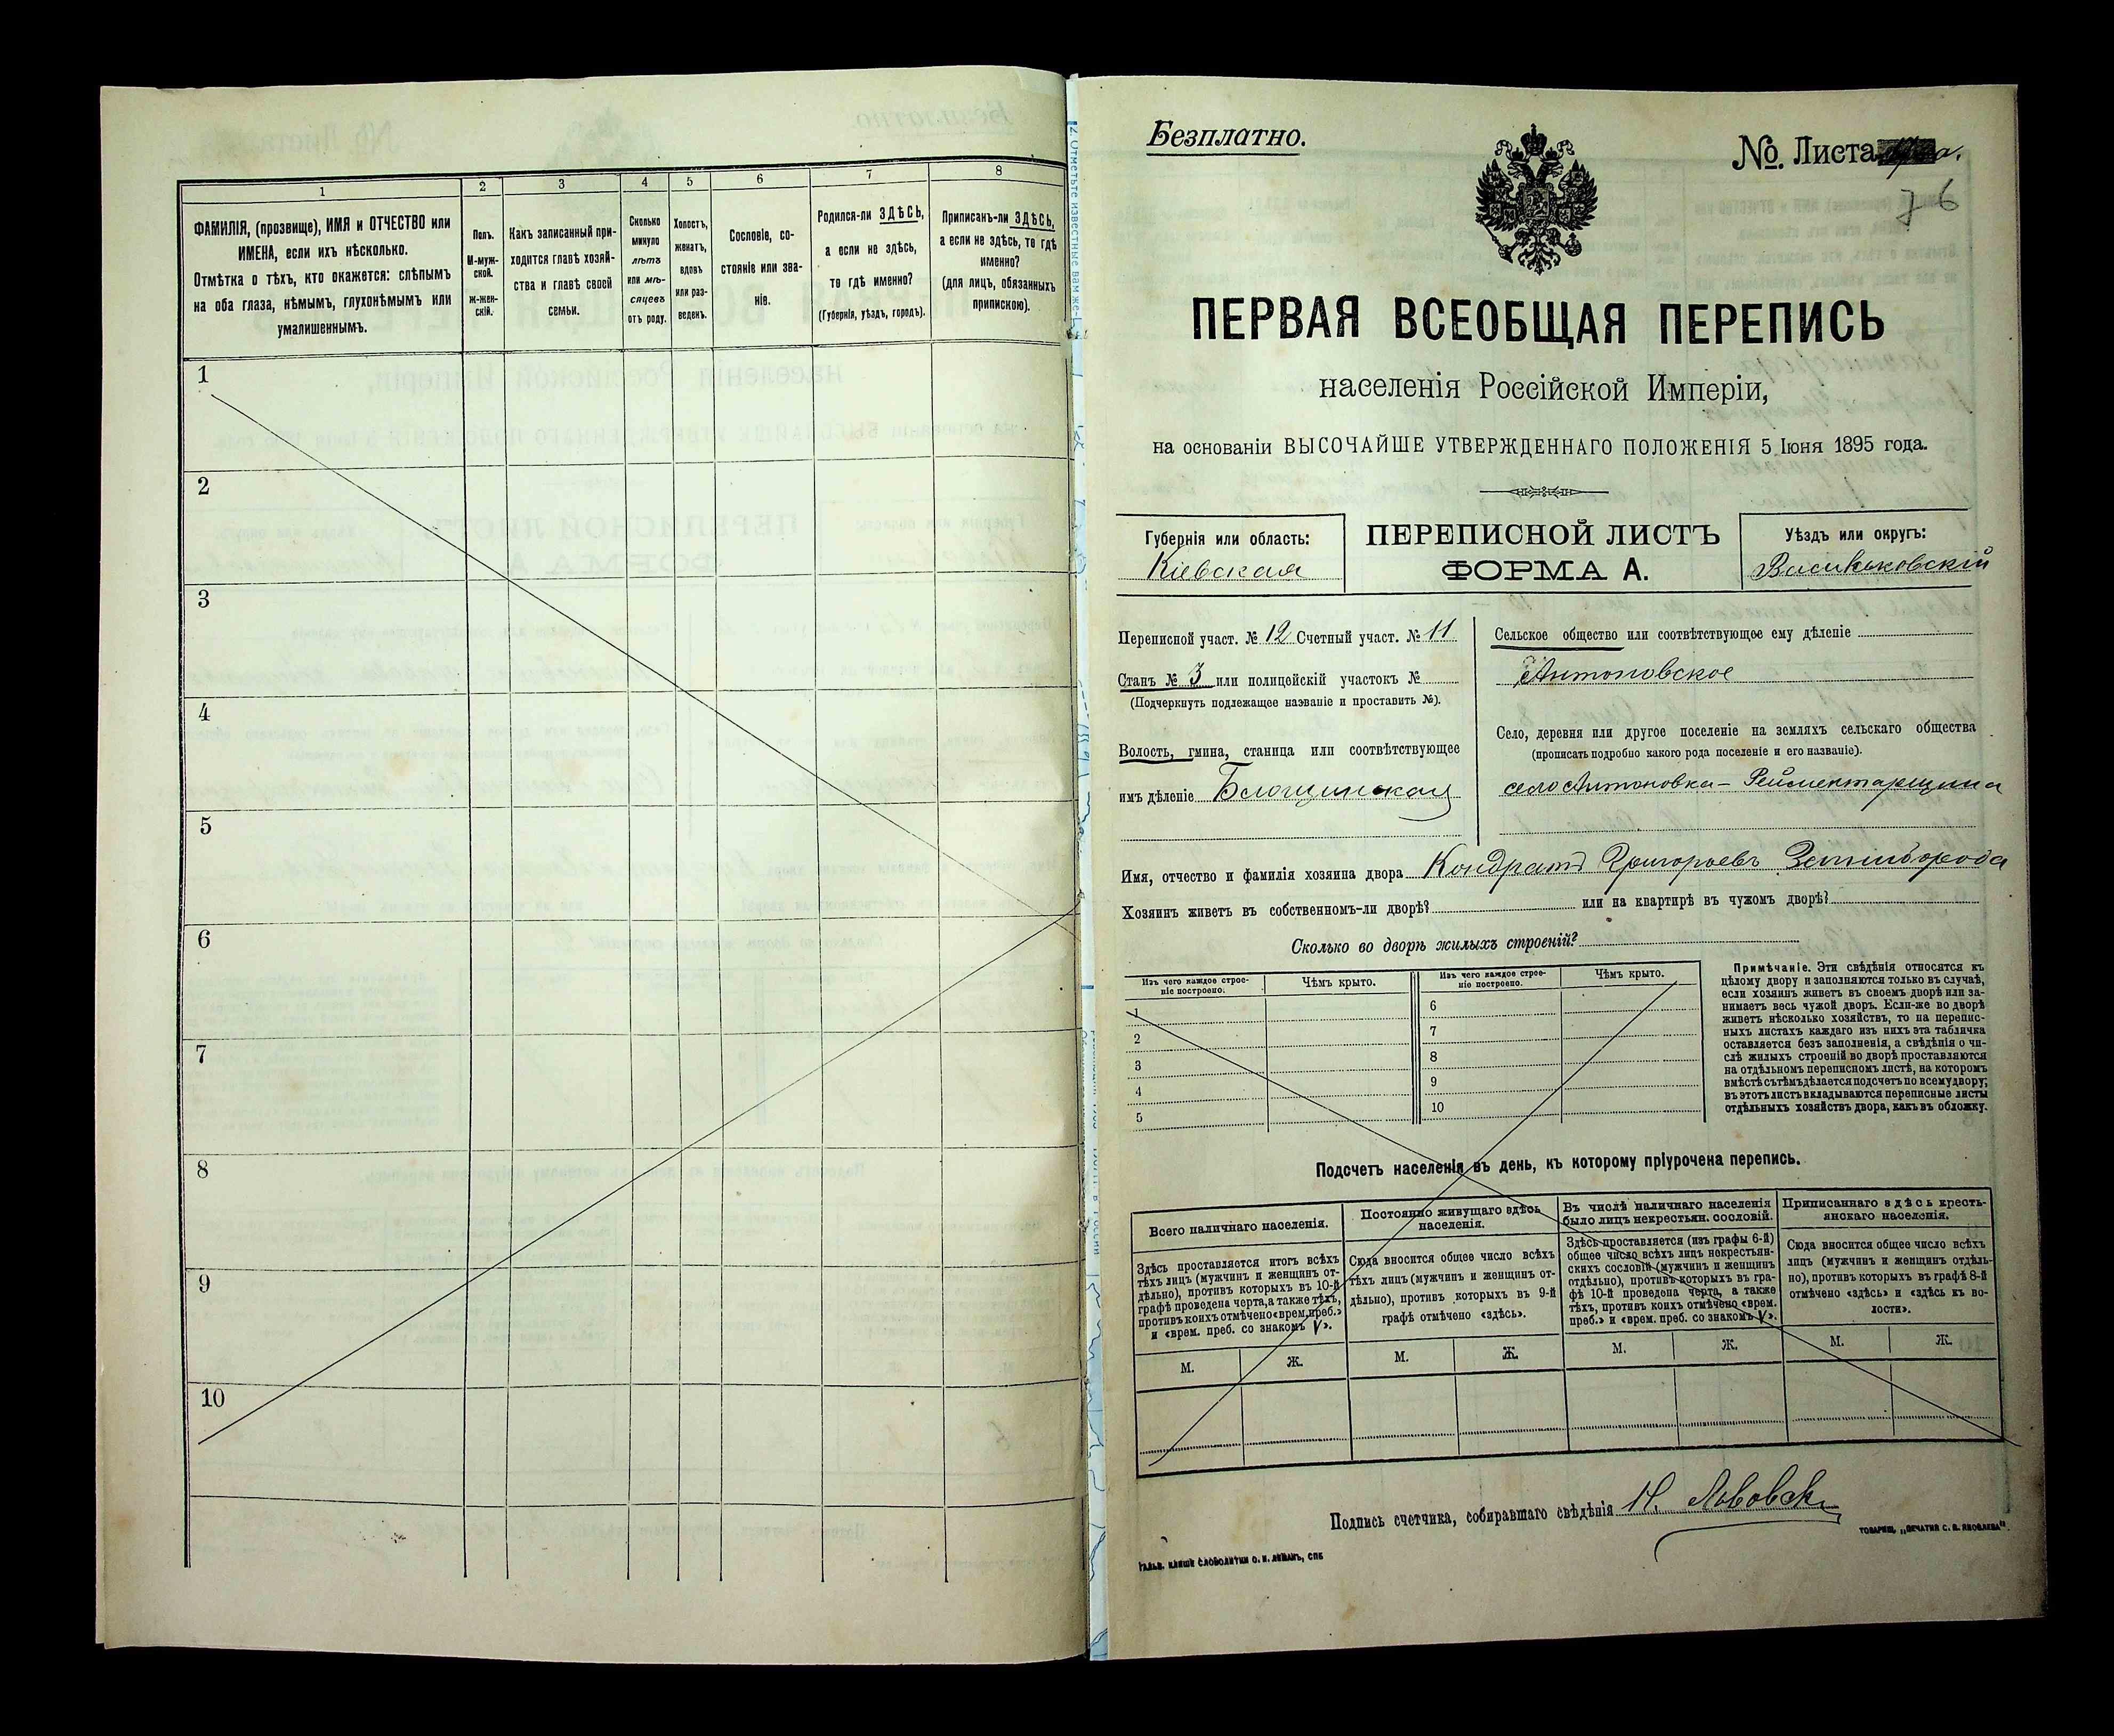 1
2
3
4
5
6
7
8
ФАМИЛІЯ, (прозвище), ИМЯ и ОТЧЕСТВО или
ИМЕНА, если ихъ нѣсколько.
Отмѣтка о тѣхъ, кто окажется: слѣпымъ
на оба глаза, нѣмымъ, глухонѣмымъ или
умалишеннымъ.
Полъ.
М-муж-
ской.
ж-жен-
скій.
Какъ записанный при-
ходится главѣ хозяй-
ства и главѣ своей
семьи.
Сколько
минуло
лѣтъ
или мѣ-
сяцевъ
отъ роду.
Холостъ,
женатъ,
вдовъ
или раз-
веденъ.
Сословіе, со-
стояніе или зва-
ніе.
Родился-ли ЗДѢСЬ,
а если не здѣсь,
то гдѣ именно?
(Губернія, уѣздъ, городъ).
Приписанъ-ли ЗДѢСЬ,
а если не здѣсь, то гдѣ
именно?
(для лицъ, обязанныхъ
припискою).
1
2
3
4
5
6
7
8
9
10
Безплатно.
№ Листа
76
ПЕРВАЯ ВСЕОБЩАЯ ПЕРЕПИСЬ
населенія Россійской Имперіи,
на основаніи ВЫСОЧАЙШЕ УТВЕРЖДЕННАГО ПОЛОЖЕНІЯ 5 Іюня 1895 года.
Губернія или область:
Кіевская
ПЕРЕПИСНОЙ ЛИСТЪ
ФОРМА А.
Уѣздъ или округъ:
Васильковскій
Переписной участ. № 12 Счетный участ. № 11
Станъ № 3 или полицейскій участокъ №
(Подчеркнуть подлежащее названіе и проставить №).
Волость, гмина, станица или соотвѣтствующее
имъ дѣленіе
Сельское общество или соотвѣтствующее ему дѣленіе
Антоновское
Село, деревня или другое поселеніе на земляхъ сельскаго общества
(прописать подробно какого рода поселеніе и его названіе).
село Антоновка - Рейментарщина
Имя, отчество и фамилія хозяина двора Кондратъ Григорьевъ
Хозяинъ живетъ въ собственномъ-ли дворѣ? или на квартирѣ въ чужомъ дворѣ?
Сколько во дворѣ жилыхъ строеній?
Изъ чего каждое строе-
ніе построено.
Чѣмъ крыто.
Изъ чего каждое строе-
ніе построено.
Чѣмъ крыто.
1
2
3
4
5
6
7
8
9
10
Примѣчаніе. Эти свѣдѣнія относятся къ
цѣлому двору и заполняются только въ случаѣ,
если хозяинъ живетъ въ своемъ дворѣ или за-
нимаетъ весь чужой дворъ. Если-же во дворѣ
живетъ нѣсколько хозяйствъ, то на перепис-
ныхъ листахъ каждаго изъ нихъ эта табличка
оставляется безъ заполненія, а свѣдѣнія о чи-
слѣ жилыхъ строеній во дворѣ проставляются
на отдѣльномъ переписномъ листѣ, на которомъ
вмѣстѣ съ тѣмъ дѣлается подсчетъ по всему двору;
въ этотъ листъ вкладываются переписные листы
отдѣльныхъ хозяйствъ двора, какъ въ обложку.
Подсчетъ населенія въ день, къ которому пріурочена перепись.
Всего наличнаго населенія.
Здѣсь проставляется итогъ всѣхъ
тѣхъ лицъ (мужчинъ и женщинъ от-
дѣльно), противъ которыхъ въ 10-й
графѣ проведена черта, а также тѣхъ,
противъ коихъ отмѣчено «врем. преб.»
и «врем. преб. со знакомъ V».
М.
Ж.
Постоянно живущаго здѣсь
населенія.
Сюда вносится общее число всѣхъ
тѣхъ лицъ (мужчинъ и женщинъ от-
дѣльно), противъ которыхъ въ 9-й
графѣ отмѣчено «здѣсь».
М.
Ж.
Въ числѣ наличнаго населенія
было лицъ некрестьян. сословій.
Здѣсь проставляется (изъ графы 6-й)
общее число всѣхъ лицъ некрестьян-
скихъ сословій (мужчинъ и женщинъ
отдѣльно), противъ которыхъ въ гра-
фѣ 10-й проведена черта, а также
тѣхъ, противъ коихъ отмѣчено «врем.
преб.» и «врем. преб. со знакомъ V».
М.
Ж.
Приписаннаго здѣсь кресть-
янскаго населенія.
Сюда вносится общее число всѣхъ
лицъ (мужчинъ и женщинъ отдѣль-
но), противъ которыхъ въ графѣ 8-й
отмѣчено «здѣсь» и «здѣсь къ во-
лости».
М.
Ж.
Подпись счетчика, собиравшаго свѣдѣнія
ТОВАРИЩ. „ПЕЧАТНЯ С. П. ЯКОВЛЕВА“.